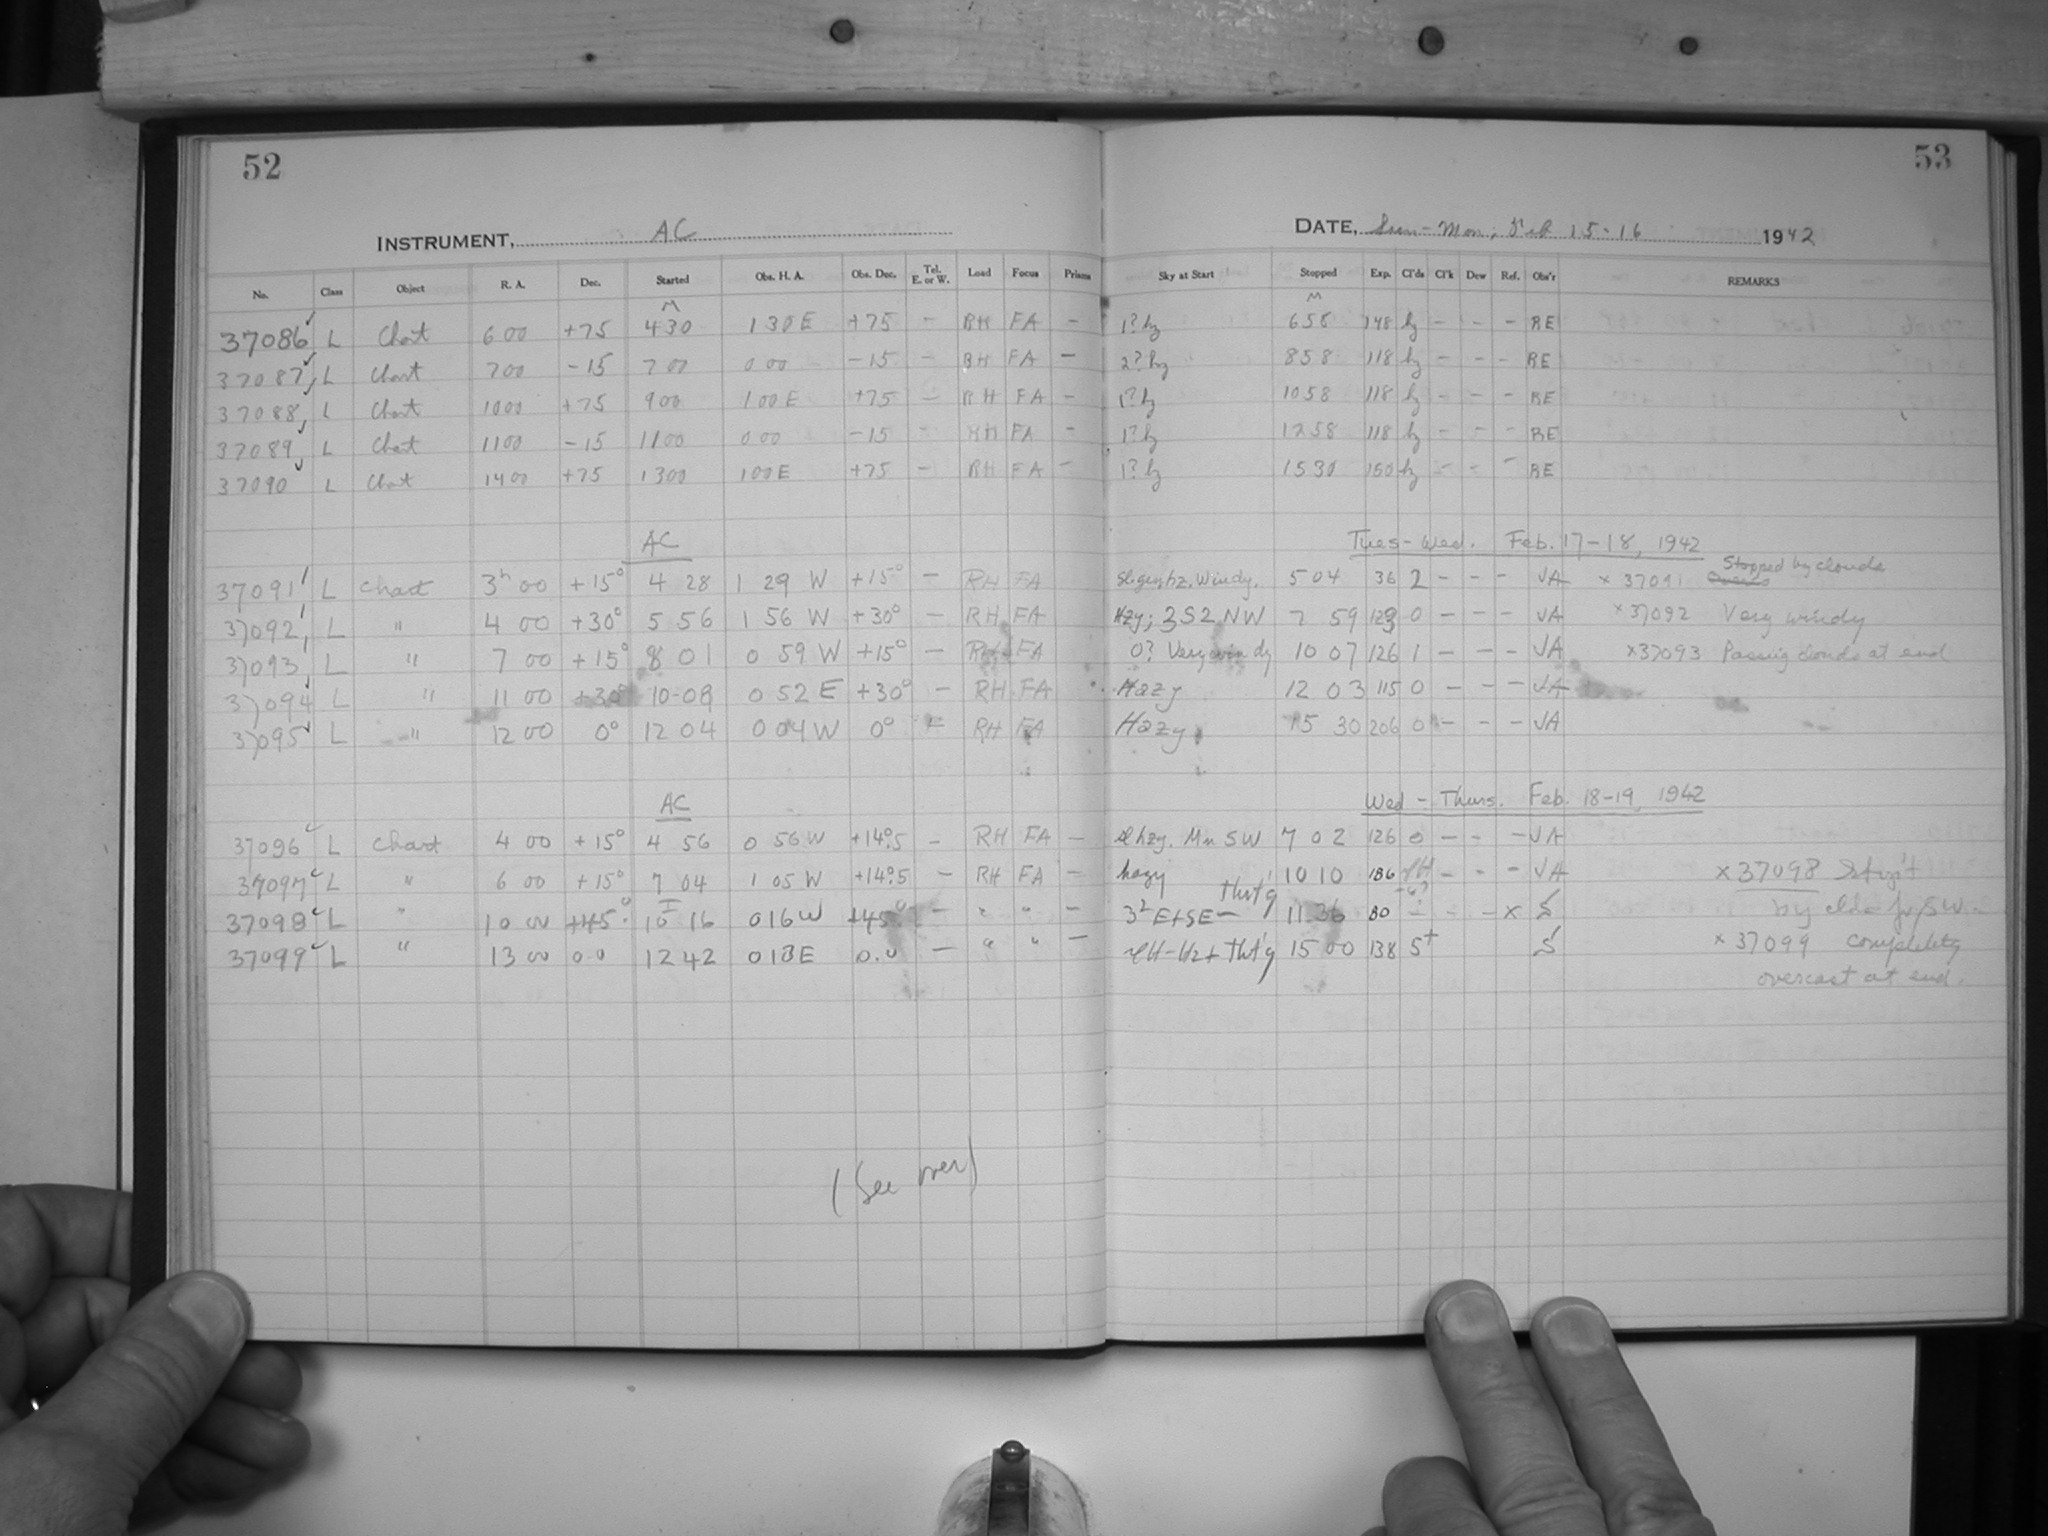 52
53
INSTRUMENT, AC
DATE, Sun - Mon, Feb 15-16 1942
No. Class Object R. A. Dec. Started Obs. H. A. Obs. Dec. Tel. E. or W. Load Focus Prisms Sky at Start Stopped Exp. Cl'ds Cl'k Dew Ref. Obs'r REMARKS
M M
37086 L Chart 6 00 +75 4 30 1 30 E +75 - RH FA - 1? hz 6 58 148 hz - - - BE
37087 L Chart 7 00 -15 7 00 0 00 -15 - RH FA - 2? hz 8 58 118 hz - - - BE
37088 L Chart 10 00 +75 9 00 1 00 E +75 - RH FA - 1? hz 10 58 118 hz - - - BE
37089 L Chart 11 00 -15 11 00 0 00 -15 - RH FA - 1? hz 12 58 118 hz - - - BE
37090 L Chart 14 00 +75 13 00 1 00 E +75 - RH FA - 1? hz 15 30 150 hz - - - BE
AC Tues - Wed. Feb. 17-18, 1942
37091 L Chart 3h 00 +15° 4 28 1 29 W +15° - RH FA Windy. 5 04 36 2 - - - JA × 37091 Stopped by clouds
37092 L " 4 00 +30° 5 56 1 56 W +30° - RH FA Hzy; 3S2 NW 7 59 123 0 - - - JA × 37092 Very windy
37093 L " 7 00 +15° 8 01 0 59 W +15° - RH FA 0? Very windy 10 07 126 1 - - - JA × 37093 Passing clouds at end
37094 L " 11 00 +30° 10-08 0 52 E +30° - RH FA Hazy 12 03 115 0 - - - JA
37095 L " 12 00 0° 12 04 0 04 W 0° - RH FA Hazy 15 30 206 0 - - - JA
AC Wed - Thurs. Feb. 18-19, 1942
37096 L Chart 4 00 +15° 4 56 0 56 W +14°.5 - RH FA - sl hzy. Mn SW 7 02 126 0 - - - JA
37097 L " 6 00 +15° 7 04 1 05 W +14°.5 - RH FA - hazy 10 10 186 - - - JA × 37098
37098 L " 10 00 +45° 10 16 0 16 W +45° - " " - 3² E+SE - 11.36 80 - - - × S by clds fr SW -
37099 L " 13 00 0.0 12 42 0 18 E 0.0 - " " - 15 00 138 5+ S × 37099 completely
overcast at end.
(See over)